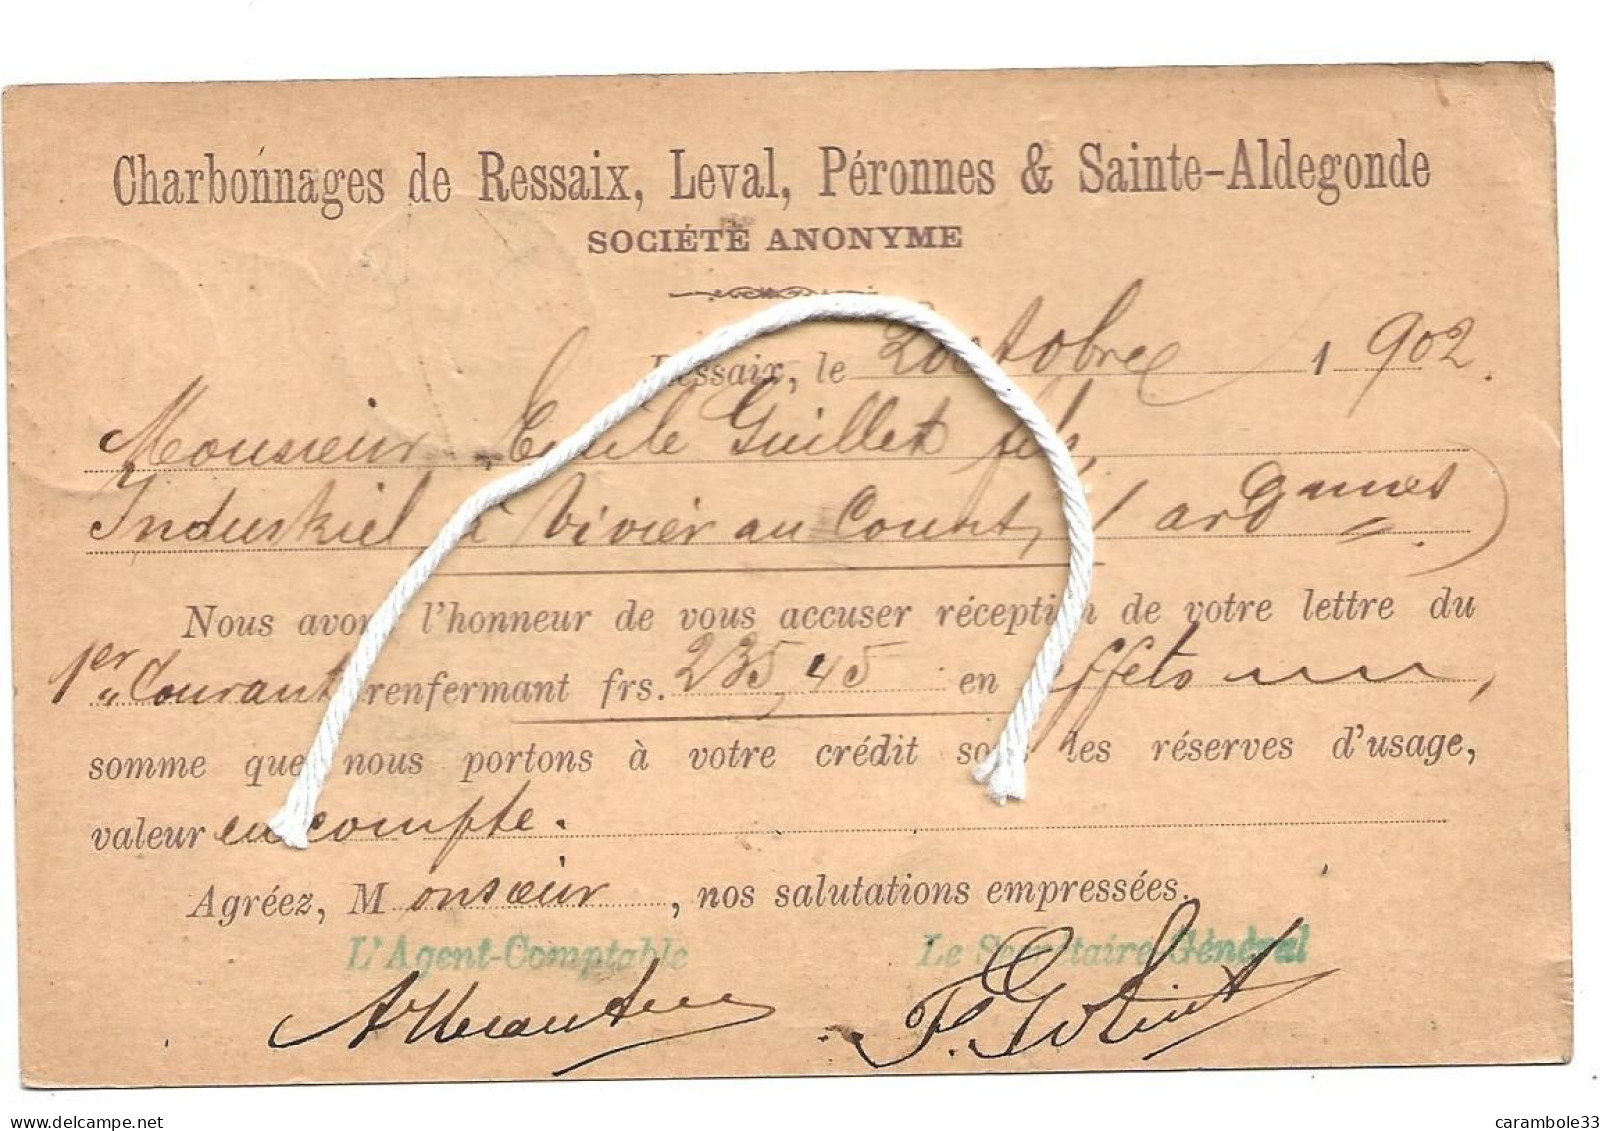 Charbonnages de Ressaix, Leval, Péronnes & Sainte-Aldegonde
SOCIÉTÉ ANONYME
Ressaix, le 2 octobre 1902.
Monsieur Emile Guillet fils,
Industriel à Vivier au Court, (ardennes)
Nous avons l'honneur de vous accuser réception de votre lettre du
1er courant renfermant frs. 235,45 en effets
somme que nous portons à votre crédit sous les réserves d'usage,
valeur en compte.
Agréez, Monsieur, nos salutations empressées.
L'Agent-Comptable Le Secrétaire Général
carambole33